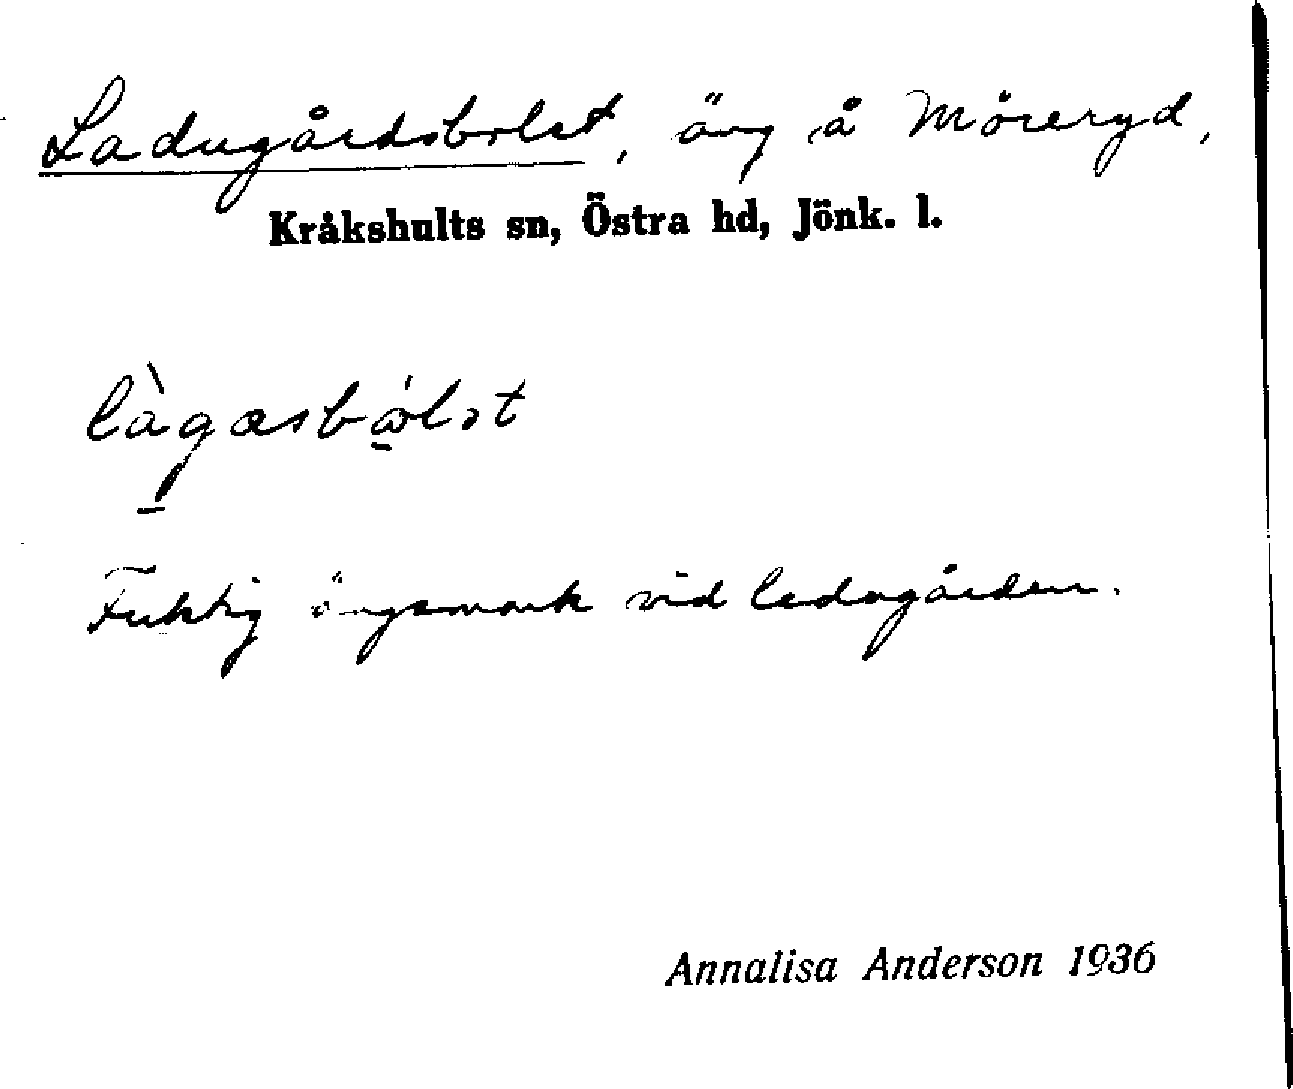 Ladugårdsbolet, äng å Möreryd,
Kråkshults sn, Östra hd, Jönk. l.
Fuktig ängsmark vid ladugården.
Annalisa Anderson 1936